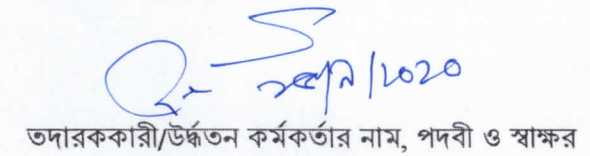 /২০২০
তদারককারী/উর্দ্ধতন কর্মকর্তার নাম, পদবী ও স্বাক্ষর